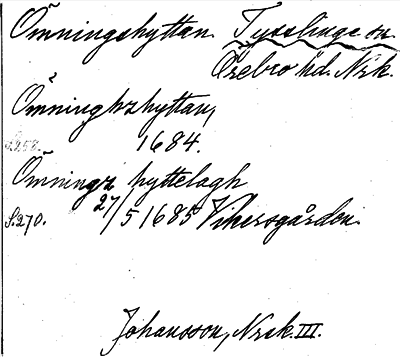 Ömningshyttan. Tysslinge sn.
Örebro hd. Nrk.
Ömninghzhyttan,
s.258. 1684.
Ömningz hyttelagh
s.270. 27/5 1685 Vikersgården.
Johansson, Nrsk. III.